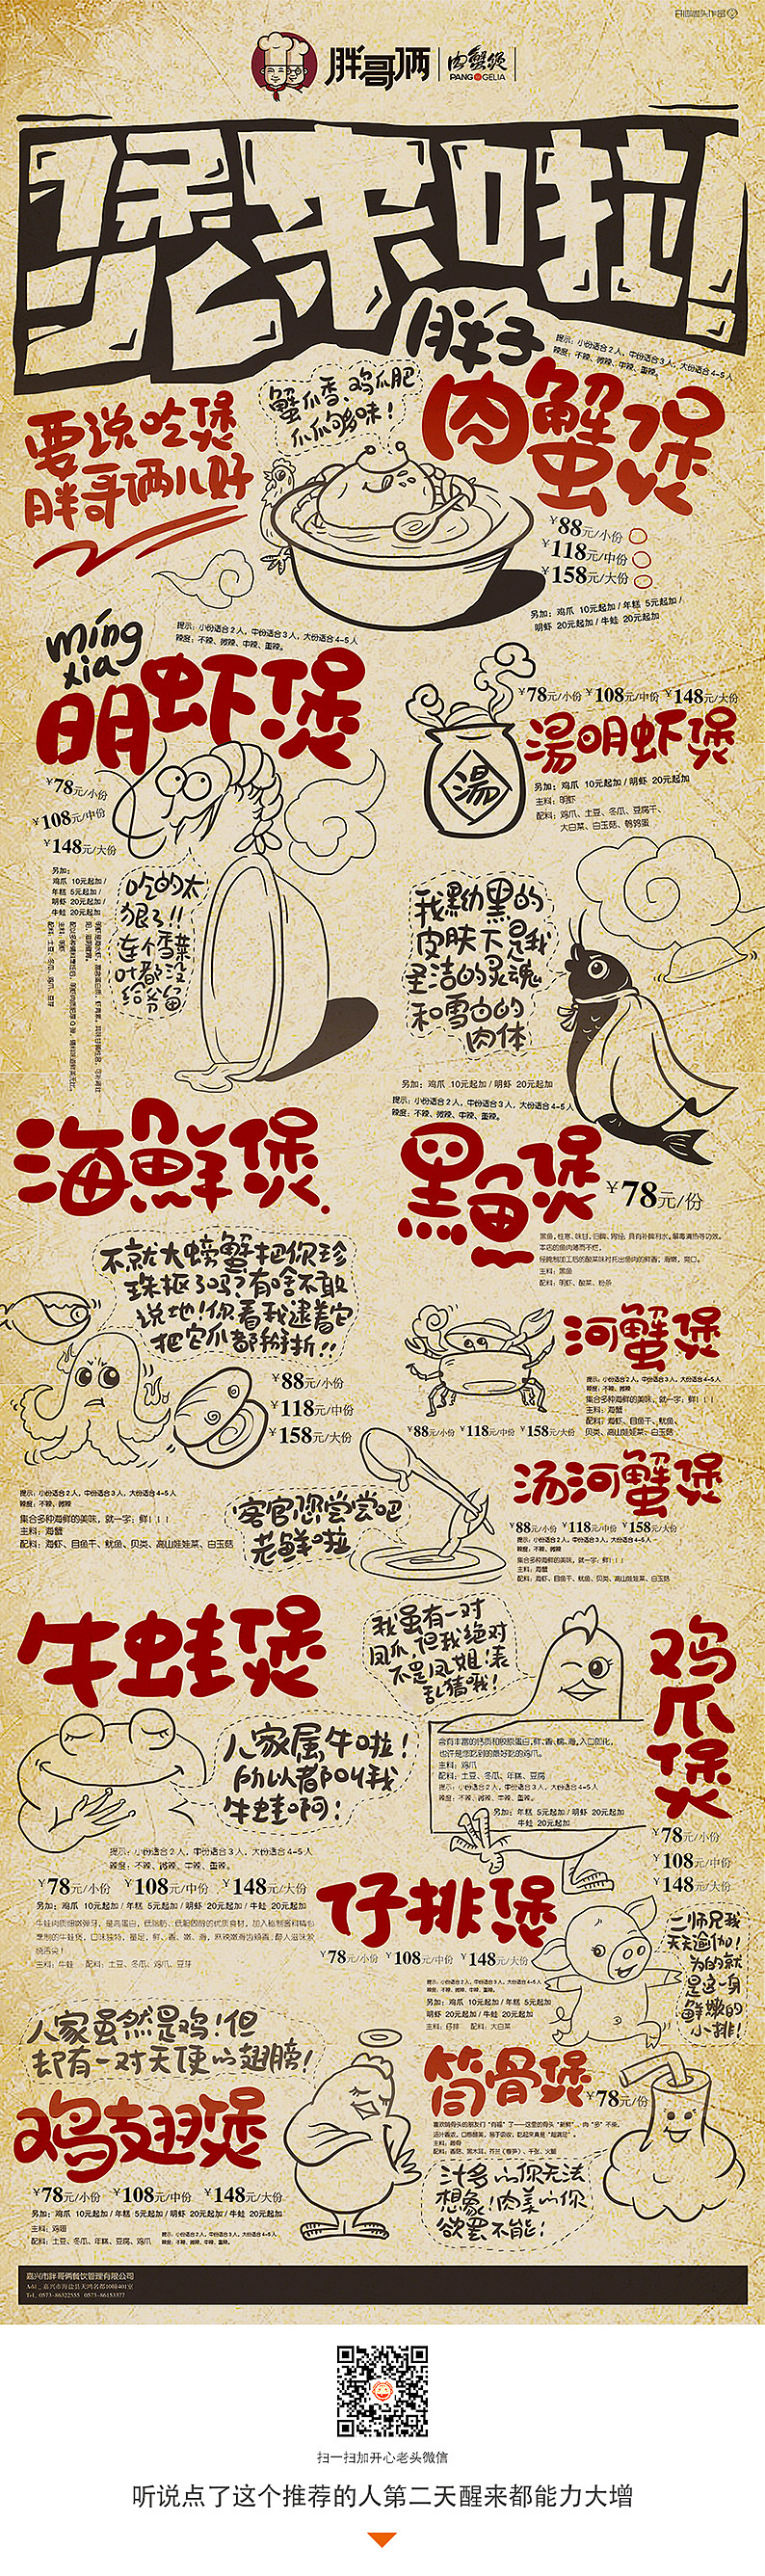 胖哥俩
肉蟹煲
PANG GELIA
煲来啦!
胖子
肉蟹煲
提示：小份适合2人，中份适合3人，大份适合4-5人
辣度：不辣、微辣、中辣、重辣。
蟹爪香、鸡爪肥
爪爪够味！
要说吃煲
胖哥俩儿好
¥88元/小份
¥118元/中份
¥158元/大份
另加：鸡爪 10元起加 / 年糕 5元起加 /
明虾 20元起加 / 牛蛙 20元起加
míng
xia
提示：小份适合2人，中份适合3人，大份适合4-5人
辣度：不辣、微辣、中辣、重辣。
明虾煲
¥78元/小份
¥108元/中份
¥148元/大份
另加：
鸡爪 10元起加 /
年糕 5元起加 /
明虾 20元起加 /
牛蛙 20元起加
吃的太
狠了!!
连个香菜
叶都没
给爷留
¥78元/小份 ¥108元/中份 ¥148元/大份
湯明虾煲
湯
另加：鸡爪 10元起加 / 明虾 20元起加
主料：明虾
配料：鸡爪、土豆、冬瓜、豆腐干、
大白菜、白玉菇、鹌鹑蛋
我黝黑的
皮肤下是我
圣洁的灵魂
和雪白的
肉体
另加：鸡爪 10元起加 / 明虾 20元起加
提示：小份适合2人，中份适合3人，大份适合4-5人
辣度：不辣、微辣、中辣、重辣。
黑鱼煲
¥78元/份
主料：黑鱼
配料：明虾、酸菜、粉条
海鲜煲
不就大螃蟹把你珍
珠抠了吗?有啥不敢
说地!你看我逮着它
把它爪都掰折!!
¥88元/小份
¥118元/中份
¥158元/大份
提示：小份适合2人，中份适合3人，大份适合4-5人
辣度：不辣、微辣
集合多种海鲜的美味，就一字：鲜！！！
主料：海蟹
配料：海虾、目鱼干、鱿鱼、贝类、高山娃娃菜、白玉菇
河蟹煲
提示：小份适合2人，中份适合3人，大份适合4-5人
辣度：不辣、微辣
集合多种海鲜的美味，就一字：鲜！！！
主料：海蟹
配料：海虾、目鱼干、鱿鱼、
贝类、高山娃娃菜、白玉菇
¥88元/小份 ¥118元/中份 ¥158元/大份
汤河蟹煲
¥88元/小份 ¥118元/中份 ¥158元/大份
提示：小份适合2人，中份适合3人，大份适合4-5人
辣度：不辣、微辣
集合多种海鲜的美味，就一字：鲜！！！
主料：海蟹
配料：海虾、目鱼干、鱿鱼、贝类、高山娃娃菜、白玉菇
客官您尝尝吧
老鲜啦
牛蛙煲
人家属牛啦!
所以都叫我
牛蛙啊!
提示：小份适合2人，中份适合3人，大份适合4-5人
辣度：不辣、微辣、中辣、重辣。
¥78元/小份 ¥108元/中份 ¥148元/大份
另加：鸡爪 10元起加 / 年糕 5元起加 / 明虾 20元起加 / 牛蛙 20元起加
主料：牛蛙 配料：土豆、冬瓜、鸡爪、豆芽
我虽有一对
凤爪,但我绝对
不是凤姐!表
乱猜哦!
鸡爪煲
主料：鸡爪
配料：土豆、冬瓜、年糕、豆腐
提示：小份适合2人，中份适合3人，大份适合4-5人
辣度：不辣、微辣、中辣、重辣。
另加：年糕 5元起加 / 明虾 20元起加
牛蛙 20元起加
¥78元/小份
¥108元/中份
¥148元/大份
仔排煲
¥78元/小份 ¥108元/中份 ¥148元/大份
提示：小份适合2人，中份适合3人，大份适合4-5人
辣度：不辣、微辣、中辣、重辣。
另加：鸡爪 10元起加 / 年糕 5元起加
明虾 20元起加 / 牛蛙 20元起加
主料：仔排 配料：大白菜
二师兄我
天天瑜伽!
为的就
是这一身
鲜嫩的
小排!
人家虽然是鸡!但
却有一对天使的翅膀!
鸡翅煲
¥78元/小份 ¥108元/中份 ¥148元/大份
另加：鸡爪 10元起加 / 年糕 5元起加 / 明虾 20元起加 / 牛蛙 20元起加
主料：鸡翅
配料：土豆、冬瓜、年糕、豆腐、鸡爪
提示：小份适合2人，中份适合3人，大份适合4-5人
辣度：不辣、微辣、中辣、重辣。
筒骨煲
¥78元/份
汁多的你无法
想象!肉美的你
欲罢不能!
嘉兴市胖哥俩餐饮管理有限公司
扫一扫加开心老头微信
听说点了这个推荐的人第二天醒来都能力大增